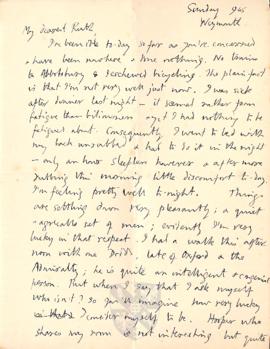 Sunday 9.45
Weymouth
My dearest Ruth,
I'm been idle to-day so far as you're concerned
& have been nowhere & done nothing. No train to
Abbotsbury & I eschewed bicycling. The plain fact
is that I'm not very well just now. I was sick
after dinner last night – it seemed rather from
fatigue than biliousness & yet I had nothing to be
fatigued about. Consequently I went to bed with
my back unrubbed & had to do it in the night
– only an hour sleepless however & after more
rubbing this morning little discomfort to-day.
I'm feeling pretty well to-night. Things
are settling down very pleasantly; a quiet
& agreeable set of men; evidently I'm very
lucky in that respect. I had a walk this after
noon with one Dodds, late of Oxford & the
Admiralty; he is quite an intelligent & congenial
person. That when I say, that I ask myself
who isn't? So you'll imagine how very lucky
I consider myself to be. Hooper who
shares my room is not interesting but quite